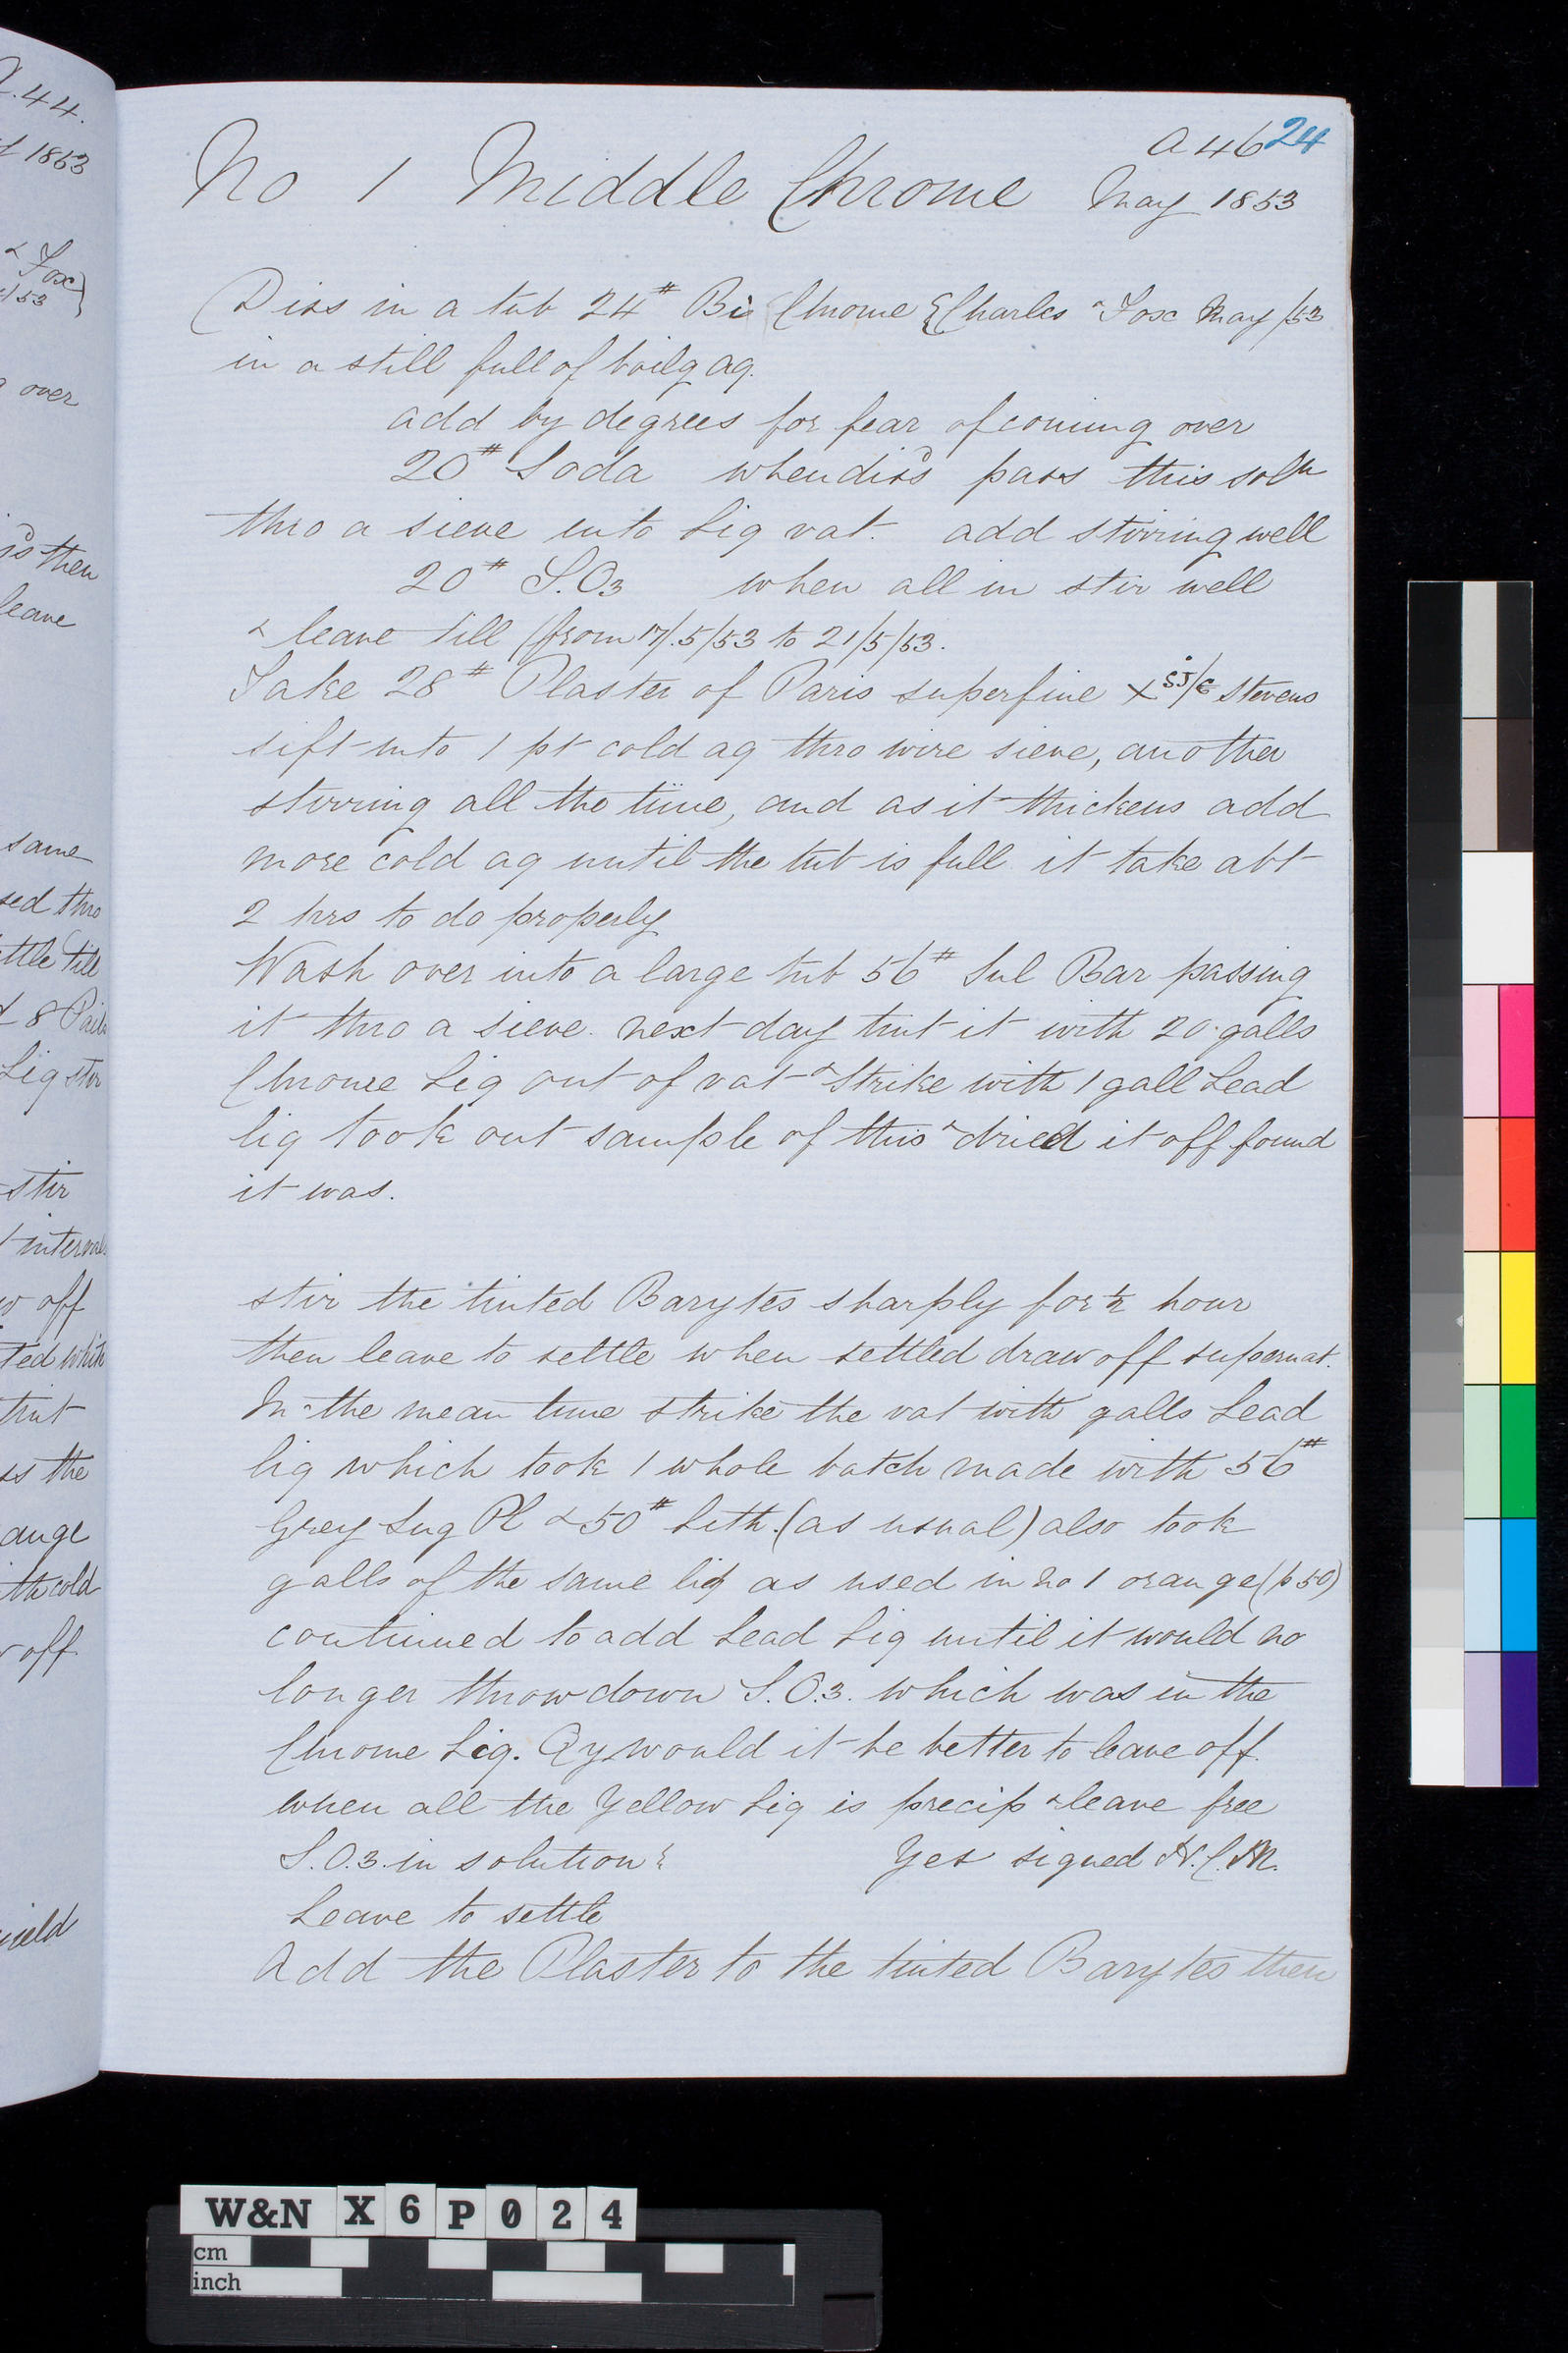 A.44.
1853
& Fox
/53
over
is'd then
leave
same
sed thro
ttle till
8 Pails
Liq stir
stir
intervals
off
ted white
tint
ss the
ange
th cold
off
A 46 24
No 1 Middle Chrome May 1853
Diss in a tub 24# Bi Chrome { Charles & Fox May /53
in a still full of boilg aq.
add by degrees for fear of coming over
20# Soda when diss'd pass this soln
thro a sieve into Liq vat. add stirring well
20# S.O3 when all in stir well
& leave till (from 17/.5/53 to 21/5/53.
Take 28# Plaster of Paris superfine x SJ/6 Stevens
sift into 1 pt cold aq thro wire sieve, another
stirring all the time, and as it thickens add
more cold aq until the tub is full it take abt
2 hrs to do properly
Wash over into a large tub 56# Sul Bar passing
it thro a sieve. next day tint it with 20 galls
Chrome Liq out of vat & Strike with 1 gall Lead
liq took out sample of this & dried it off found
it was.
stir the tinted Barytes sharply for ½ hour
then leave to settle when settled draw off supernat.
In the mean time strike the vat with galls Lead
liq which took 1 whole batch made with 56#
Grey Sug Pl & 50# Lith. (as usual) also took
galls of the same liq as used in No 1 orange (p 50)
continued to add Lead Liq until it would no
longer throw down S.O.3. which was in the
Chrome Liq. Qy would it be better to leave off.
when all the Yellow Liq is precip & leave free
S.O.3. in solution? Yes signed N.C.M.
Leave to settle
Add the Plaster to the tinted Barytes then
W&N X 6 P 0 2 4
cm
inch